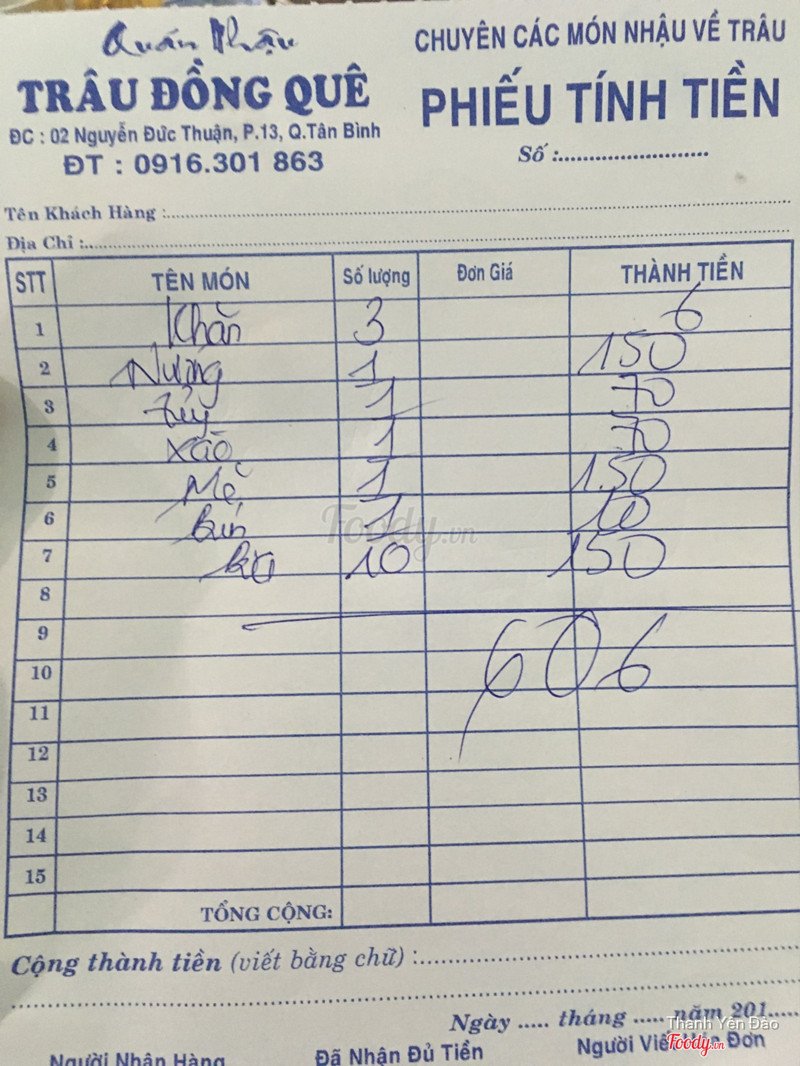 Quán Nhậu
TRÂU ĐỒNG QUÊ
ĐC : 02 Nguyễn Đức Thuận, P.13, Q.Tân Bình
ĐT : 0916.301 863
CHUYÊN CÁC MÓN NHẬU VỀ TRÂU
PHIẾU TÍNH TIỀN
Số :........................
Tên Khách Hàng :
Địa Chỉ :
STT TÊN MÓN Số lượng Đơn Giá THÀNH TIỀN
1 Khăn 3 6
2 Nướng 1 150
3 1 70
4 Xào 1 70
5 1 150
6 Bún 1 10
7 10 150
8
9
606
10
11
12
13
14
15
TỔNG CỘNG:
Cộng thành tiền (viết bằng chữ) :
Ngày ..... tháng ..... năm 201.....
Người Nhận Hàng Đã Nhận Đủ Tiền Người Viết Hóa Đơn
Foody.vn
Thanh Yên Đào
Foody.vn